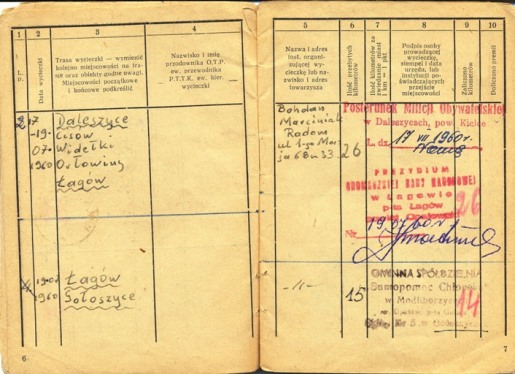 1
2
3
4
L. p.
Data wycieczki
Trasa wycieczki — wymienić kolejno miejscowości na trasie oraz obiekty godne uwagi. Miejscowości początkowe i końcowe podkreślić
Nazwisko i imię przodownika O.T.P. ew. przewodnika P.T.T.K. ew. kier. wycieczki
2
17
-19.
07.
1960
Daleszyce
Cisów
Widełki
Orłowiny
Łagów
19.07
1960
Łagów
6
5
6
7
8
9
10
Nazwa i adres inst. organizującej wycieczkę lub nazwisko i adres towarzysza
Ilość przebytych kilometrów
Podpis osoby prowadzącej wycieczkę, stempel i data urzędu, lub instytucji poświadczających przejście miejscowości
Zaliczono kilometrów
Doliczono premii
Bohdan
Marciniak
Radom
ul 1-go Maja
68 m 33.
26
Posterunek Milicji Obywatelskiej
w Daleszycach, pow. Kielce
L. dz. 17 VII 1960 r.
PREZYDIUM
GROMADZKIEJ RADY NARODOWEJ
w Łagowie
p-ta Łagów
26
Nr
-"-
15
GMINNA SPÓŁDZIELNIA
Samopomoc Chłopska
w Modliborzycach
14
7